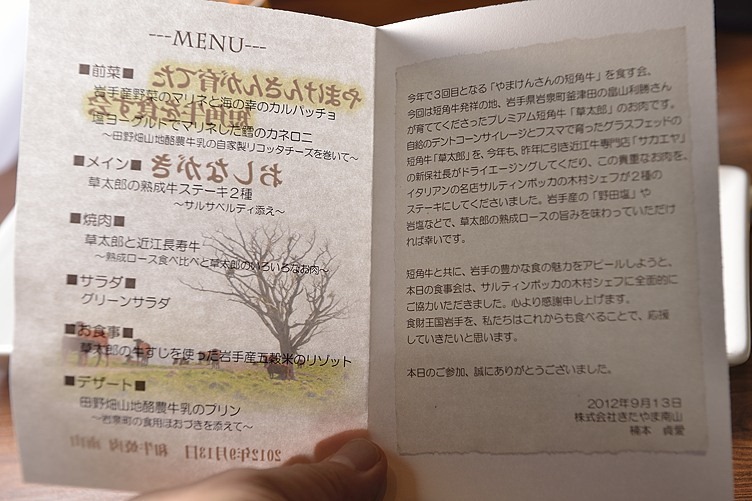 ---MENU---
■前菜■
岩手産野菜のマリネと海の幸のカルパッチョ
塩ヨーグルトでマリネした鱈のカネロニ
～田野畑山地酪農牛乳の自家製リコッタチーズを巻いて～
■メイン■
草太郎の熟成牛ステーキ２種
～サルサベルディ添え～
■焼肉■
草太郎と近江長寿牛
～熟成ロース食べ比べと草太郎のいろいろなお肉～
■サラダ■
グリーンサラダ
■お食事■
草太郎の牛すじを使った岩手産五穀米のリゾット
■デザート■
田野畑山地酪農牛乳のプリン
～岩泉町の食用ほおづきを添えて～
やまけんさんが育てた
短角牛を食す会
おしながき
2012年9月13日　和牛焼肉 南山
今年で３回目となる「やまけんさんの短角牛」を食す会。
今回は短角牛発祥の地、岩手県岩泉町釜津田の畠山利勝さん
が育ててくださったプレミアム短角牛「草太郎」のお肉です。
自給のデントコーンサイレージとフスマで育ったグラスフェッドの
短角牛「草太郎」を、今年も、昨年に引き近江牛専門店「サカエヤ」
の新保社長がドライエージングしてくだり、この貴重なお肉を、
イタリアンの名店サルティンボッカの木村シェフが２種の
ステーキにしてくださいました。岩手産の「野田塩」や
岩塩などで、草太郎の熟成ロースの旨みを味わっていただけ
れば幸いです。
短角牛と共に、岩手の豊かな食の魅力をアピールしようと、
本日の食事会は、サルティンボッカの木村シェフに全面的に
ご協力いただきました。心より感謝申し上げます。
食財王国岩手を、私たちはこれからも食べることで、応援
していきたいと思います。
本日のご参加、誠にありがとうございました。
2012年9月13日
株式会社きたやま南山
楠本　貞愛